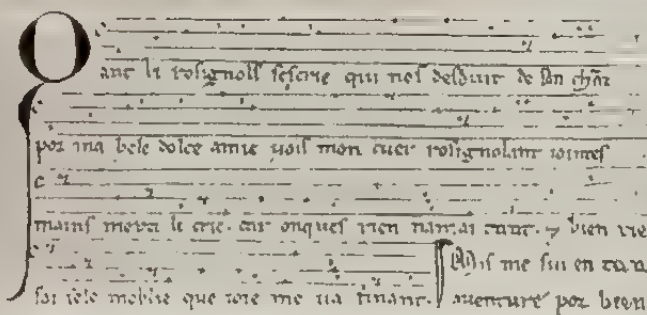 Qant li rosignols sescrie qui nos desduit de son chāt
por ma bele dolce amie uois mon cuer rosignolant iointes
mains merci li crie. car onques rien namai tant. ⁊ bien
sai sele moblie que ioie me ua finant.
Mis me sui en
auenture por